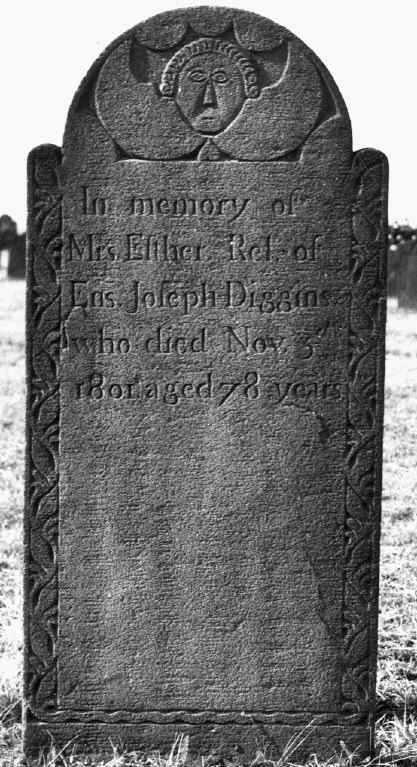 In memory of
Mrs. Eſther. Rel. of
Ens. Joſeph Diggins
who died Nov. 3rd
1801. aged 78 years